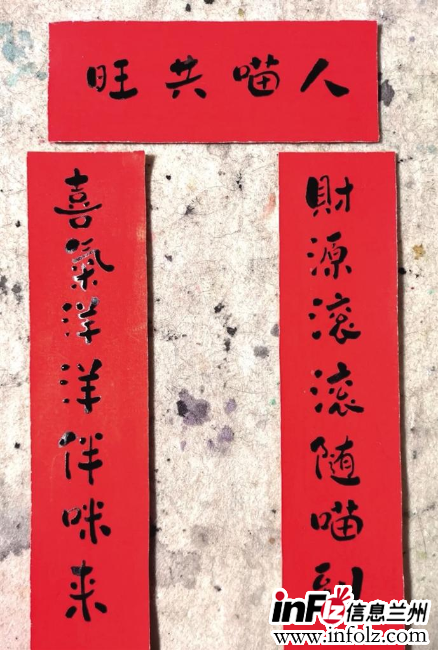 人喵共旺
財源滚滚随喵到
喜氣洋洋伴咪来
infLz 信息兰州
www.infolz.com